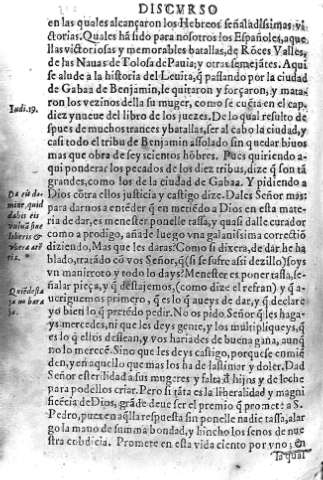 DISCVRSO
en las quales alcançaron los Hebreos señaladissimas vi-
ctorias. Quales ha sido para nosotros los Españoles, aque
llas victoriosas y memorables batallas, de Rōces Valles,
de las Nauas de Tolosa de Pauia; y otras semejātes. Aqui
se alude a la historia del Leuita, q̄ passando por la ciudad
de Gabaa de Benjamin, le quitaron y forçaron, y mata-
ron los vezinos della su muger, como se cuēta en el cap.
diez y nueue del libro de los juezes. De lo qual resulto de
spues de muchos trances y batallas, ser al cabo la ciudad, y
casi todo el tribu de Benjamin assolado sin quedar biuos
mas que obra de seyscientos hōbres. Pues quiriendo a-
qui ponderar los pecados de los diez tribus, dize q̄ son tā
grandes, como los de la ciudad de Gabaa. Y pidiendo a
Dios cōtra ellos justicia y castigo dize. Dales Señor mas:
para darnos a entēder q̄ en menēdo a Dios en esta mate
ria de dar, es menestēr ponelle tassa, y quasi dalle curador
como a prodigo, añade luego vna galanissima correctiō
diziendo, Mas que les daras: Como si dixera, de dar he ha
blado, tratādo cō vos Señor, q̄ (si se sufre assi dezillo) soys
vn manirroto y todo lo days? Menester es poner tassa, se-
ñalar pieça, y q̄ destajemos, (como dize el refran) y q̄ a-
ueriguemos primero, q̄ es lo q̄ aueys de dar, y q̄ declare
yo biē lo q̄ pretēdo pedir. No os pido Señor q̄ les haga-
ys mercedes, ni que les deys gente, y los multipliqueys, q̄
es lo q̄ ellos dessean, y vos hariades de buena gana, aunq̄
no lo merecē. Sino que les deys castigo, porque se enmiē
den, y en aquello que mas los ha de lastimar y doler. Dad
Señor esterilidad a sus mugeres y falta d̄ hijos y de leche
para podellos criar. Pero si tāta es la liberalidad y magni
ficēcia de Dios, grāde deue ser el premio q̄ promete a S.
Pedro, pues en aq̄lla respuesta sin ponelle nadie tassa, alar
go la mano de summa bondad, y hincho los senos de nue
stra cobdicia. Promete en esta vida ciento por vno; en
la qual
Iudi. 19.
Da eis do-
mine, quid
dabis eis
vuluā sine
liberis &
vbera are
tia.
*
Quiē desta
ja no bara
ja.